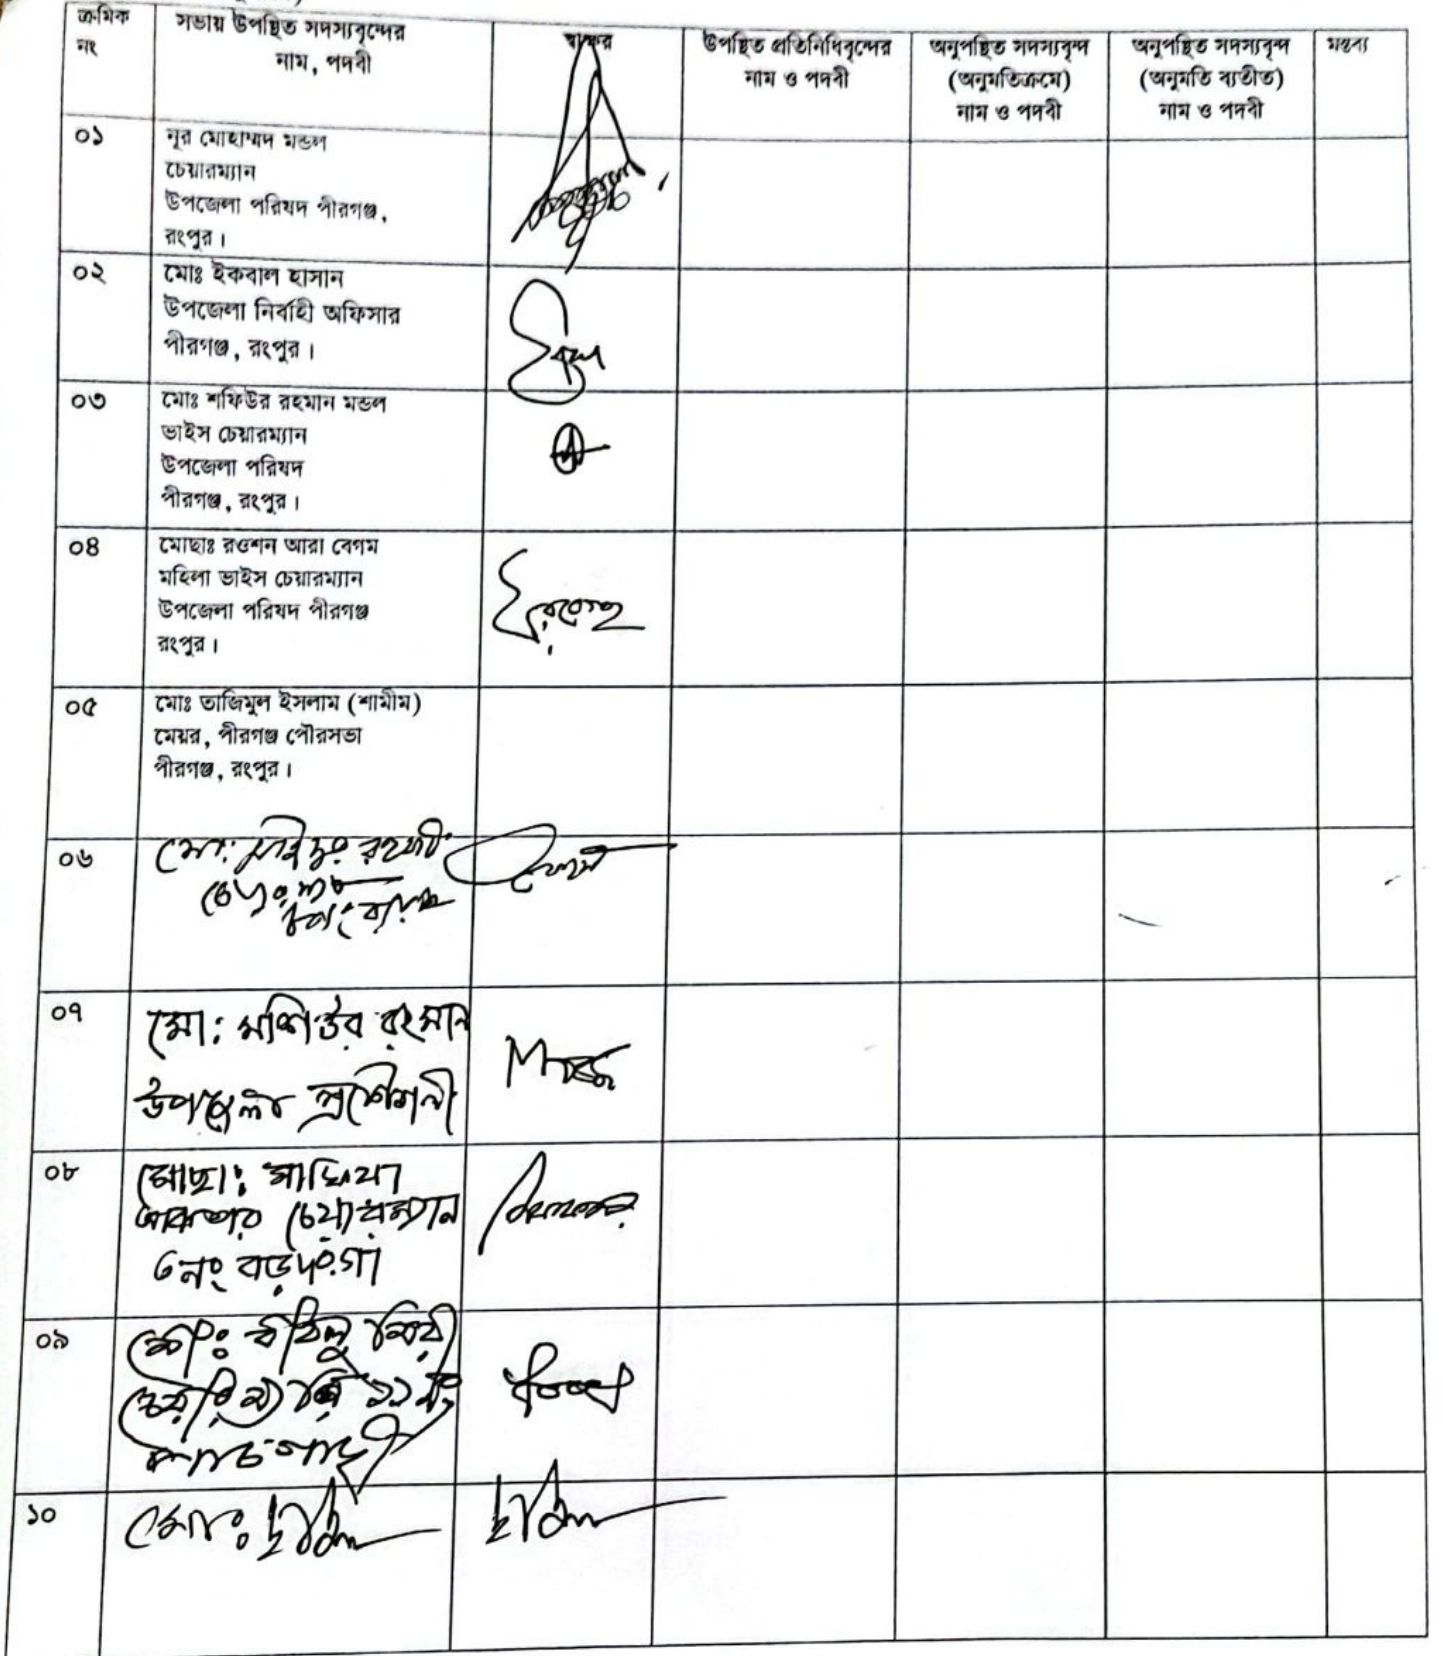 ক্রমিক
নং
সভায় উপস্থিত সদস্যবৃন্দের
নাম, পদবী
স্বাক্ষর
উপস্থিত প্রতিনিধিবৃন্দের
নাম ও পদবী
অনুপস্থিত সদস্যবৃন্দ
(অনুমতিক্রমে)
নাম ও পদবী
অনুপস্থিত সদস্যবৃন্দ
(অনুমতি ব্যতীত)
নাম ও পদবী
মন্তব্য
০১
নূর মোহাম্মদ মন্ডল
চেয়ারম্যান
উপজেলা পরিষদ পীরগঞ্জ,
রংপুর।
০২
মোঃ ইকবাল হাসান
উপজেলা নির্বাহী অফিসার
পীরগঞ্জ, রংপুর।
০৩
মোঃ শফিউর রহমান মন্ডল
ভাইস চেয়ারম্যান
উপজেলা পরিষদ
পীরগঞ্জ, রংপুর।
০৪
মোছাঃ রওশন আরা বেগম
মহিলা ভাইস চেয়ারম্যান
উপজেলা পরিষদ পীরগঞ্জ
রংপুর।
০৫
মোঃ তাজিমুল ইসলাম (শামীম)
মেয়র, পীরগঞ্জ পৌরসভা
পীরগঞ্জ, রংপুর।
০৬
মো:
০৭
মো: মশিউর রহমান
উপজেলা প্রকৌশলী
০৮
মোছা:
চেয়ারম্যান
নং বড়দরগা
০৯
মোঃ
১১ নং
পাঁচগাছী
১০
মোঃ